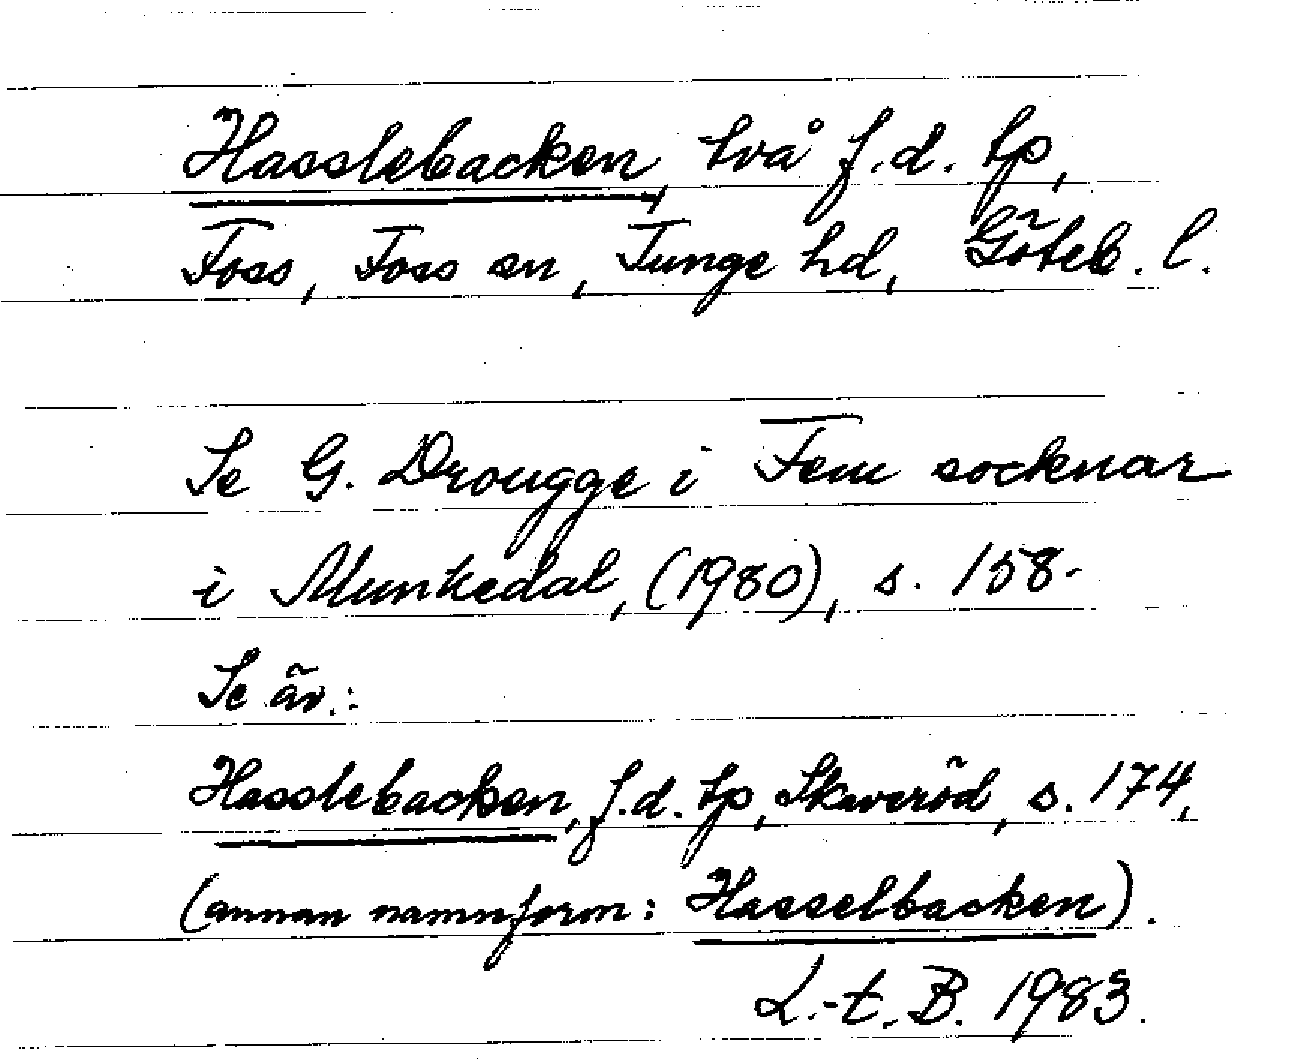 Hasslebacken, två f.d. tp,
Foss, Foss sn, Tunge hd, Göteb. l.
Se G. Drougge i Fem socknar
i Munkedal, (1980), s. 158.
Se äv.:
Hasslebacken, f.d. tp, Skaveröd, s. 174,
(annan namnform: Hasselbacken).
L.-t. B. 1983.